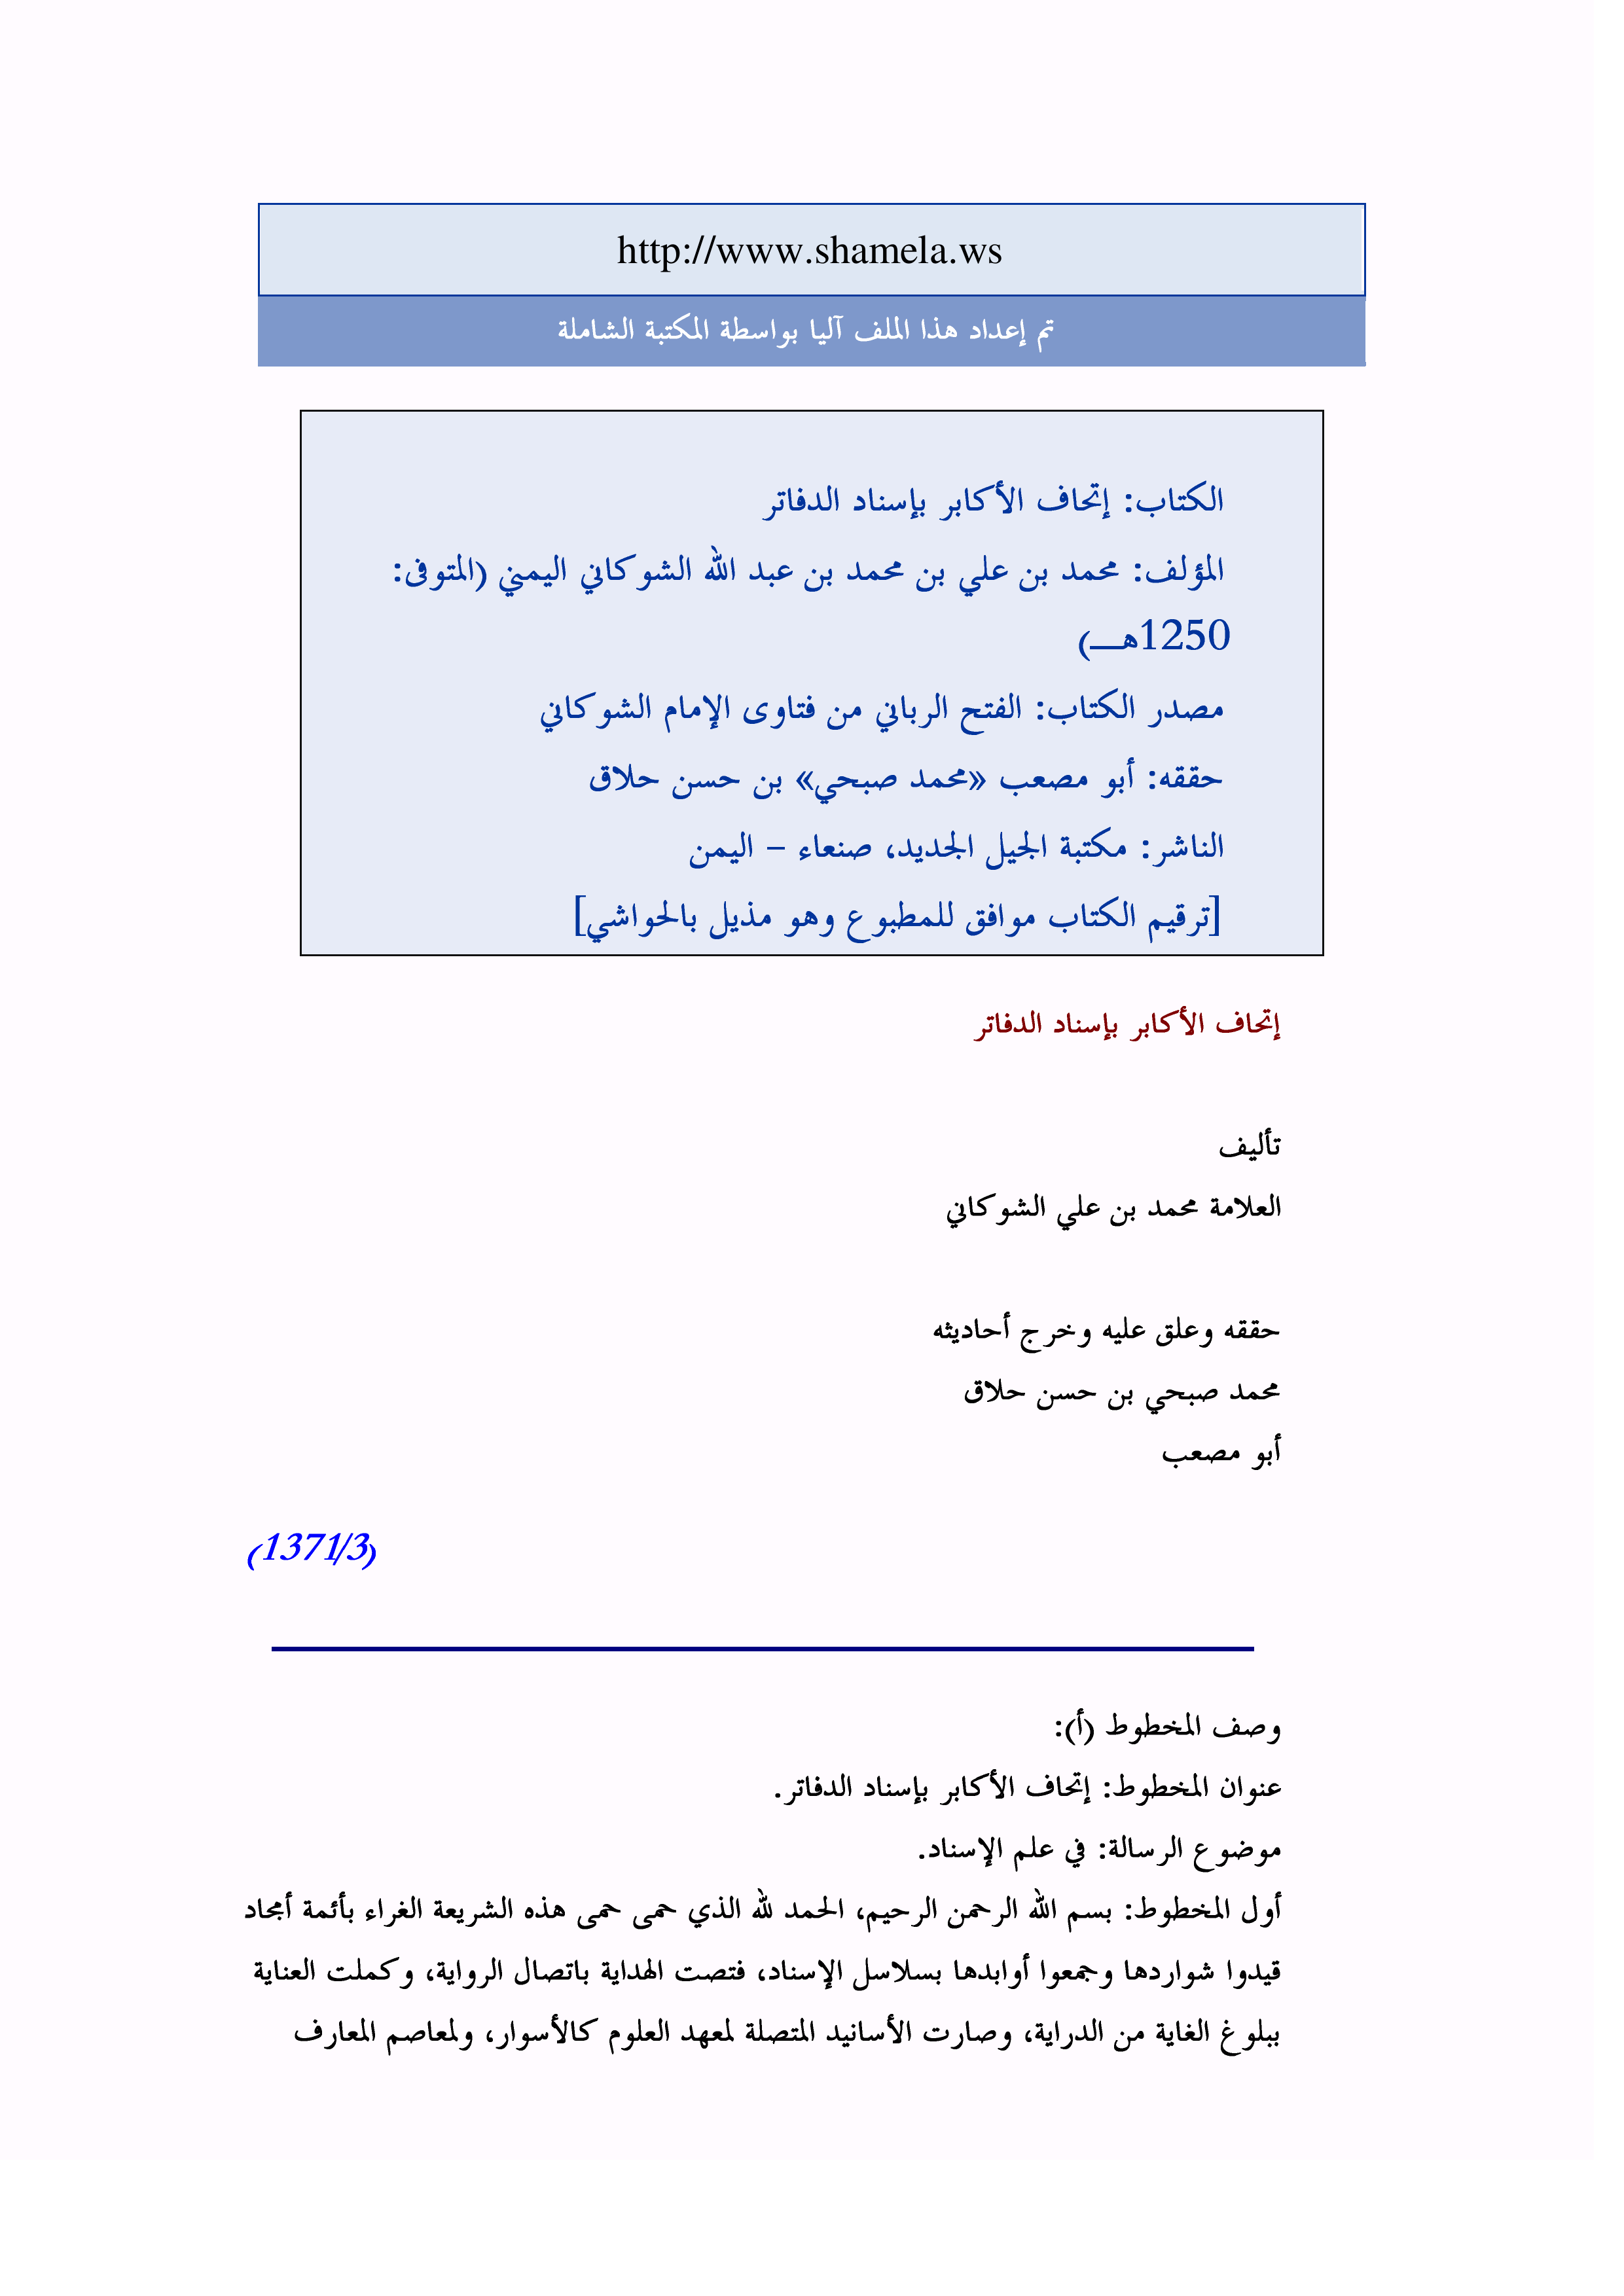 http://www.shamela.ws
تم إعداد هذا الملف آليا بواسطة المكتبة الشاملة
الكتاب: إتحاف الأكابر بإسناد الدفاتر
المؤلف: محمد بن علي بن محمد بن عبد الله الشوكاني اليمني (المتوفى:
1250هـ)
مصدر الكتاب: الفتح الرباني من فتاوى الإمام الشوكاني
حققه: أبو مصعب «محمد صبحي» بن حسن حلاق
الناشر: مكتبة الجيل الجديد، صنعاء – اليمن
[ترقيم الكتاب موافق للمطبوع وهو مذيل بالحواشي]
إتحاف الأكابر بإسناد الدفاتر
تأليف
العلامة محمد بن علي الشوكاني
حققه وعلق عليه وخرج أحاديثه
محمد صبحي بن حسن حلاق
أبو مصعب
(1371/3)
وصف المخطوط (أ):
عنوان المخطوط: إتحاف الأكابر بإسناد الدفاتر.
موضوع الرسالة: في علم الإسناد.
أول المخطوط: بسم الله الرحمن الرحيم، الحمد لله الذي حمى حمى هذه الشريعة الغراء بأئمة أمجاد
قيدوا شواردها وجمعوا أوابدها بسلاسل الإسناد، فتصت الهداية باتصال الرواية، وكملت العناية
ببلوغ الغاية من الدراية، وصارت الأسانيد المتصلة لمعهد العلوم كالأسوار، ولمعاصم المعارف